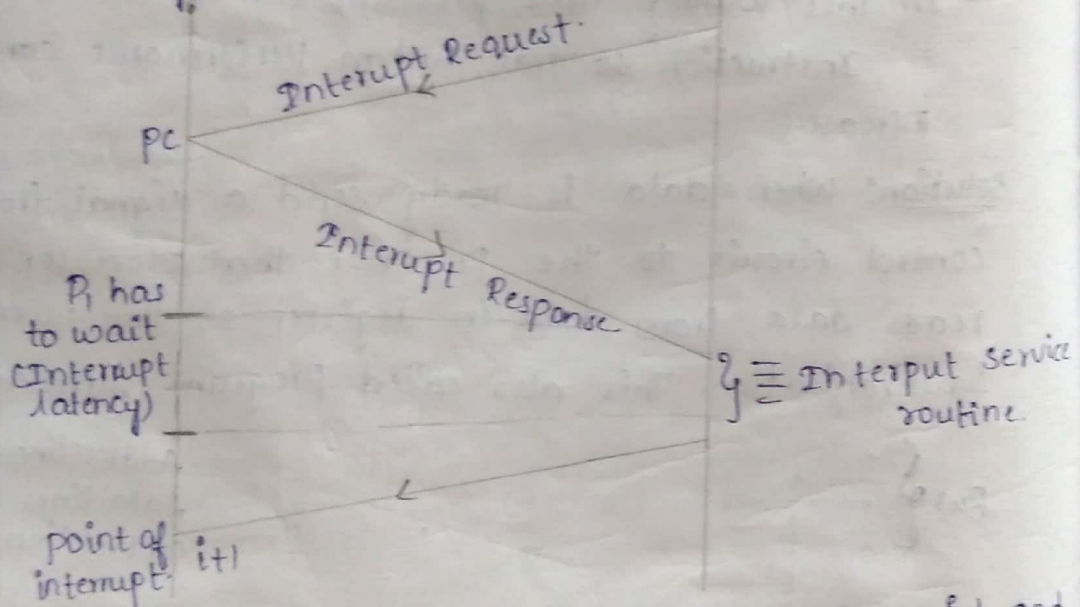 Interupt Request.
PC
Interupt Response
P1 has
to wait
(Interrupt
latency)
≡ Interput service
routine.
point of
interrupt.
i+1